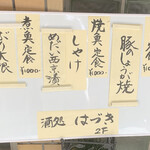 豚のしょうが焼
焼魚定食
¥1000-
しゃけ
めだい西京漬
煮魚定食
¥1000-
ぶり大根
酒処 はづき
2F